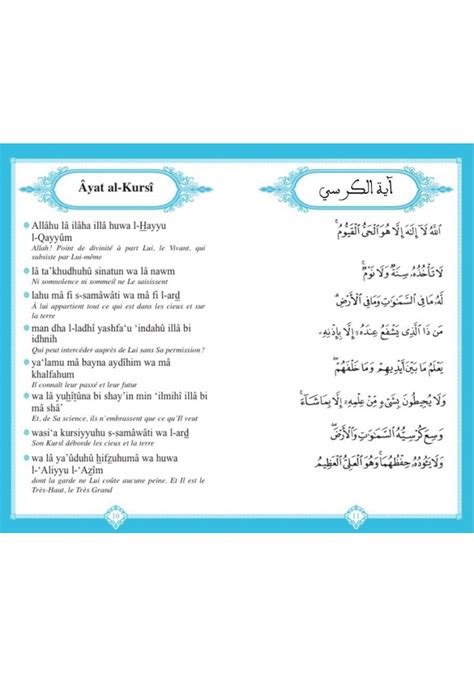 Âyat al-Kursî
Allâhu lâ ilâha illâ huwa l-Hayyu
l-Qayyûm
Allah! Point de divinité à part Lui, le Vivant, qui
subsiste par Lui-même
lâ ta'khudhuhû sinatun wa lâ nawm
Ni somnolence ni sommeil ne Le saisissent
lahu mâ fi s-samâwâti wa mâ fi l-arḍ
À lui appartient tout ce qui est dans les cieux et sur
la terre
man dha l-ladhî yashfa'u 'indahû illâ bi
idhnih
Qui peut intercéder auprès de Lui sans Sa permission ?
ya'lamu mâ bayna aydîhim wa mâ
khalfahum
Il connaît leur passé et leur futur
wa lâ yuḥîṭûna bi shay'in min 'ilmihî illâ bi
mâ shâ'
Et, de Sa science, ils n'embrassent que ce qu'Il veut
wasi'a kursiyyuhu s-samâwâti wa l-arḍ
Son Kursî déborde les cieux et la terre
wa lâ ya'ûduhû ḥifẓuhumâ wa huwa
l-'Aliyyu l-'Aẓîm
dont la garde ne Lui coûte aucune peine. Et Il est le
Très-Haut, le Très Grand
10
آية الكرسي
ٱللَّهُ لَآ إِلَٰهَ إِلَّا هُوَ ٱلْحَىُّ ٱلْقَيُّومُ ۚ
لَا تَأْخُذُهُۥ سِنَةٌ وَلَا نَوْمٌ ۚ
لَّهُۥ مَا فِى ٱلسَّمَٰوَٰتِ وَمَا فِى ٱلْأَرْضِ ۗ
مَن ذَا ٱلَّذِى يَشْفَعُ عِندَهُۥٓ إِلَّا بِإِذْنِهِۦ ۚ
يَعْلَمُ مَا بَيْنَ أَيْدِيهِمْ وَمَا خَلْفَهُمْ ۖ
وَلَا يُحِيطُونَ بِشَىْءٍ مِّنْ عِلْمِهِۦٓ إِلَّا بِمَا شَآءَ ۚ
وَسِعَ كُرْسِيُّهُ ٱلسَّمَٰوَٰتِ وَٱلْأَرْضَ ۖ
وَلَا يَـُٔودُهُۥ حِفْظُهُمَا ۚ وَهُوَ ٱلْعَلِىُّ ٱلْعَظِيمُ
11